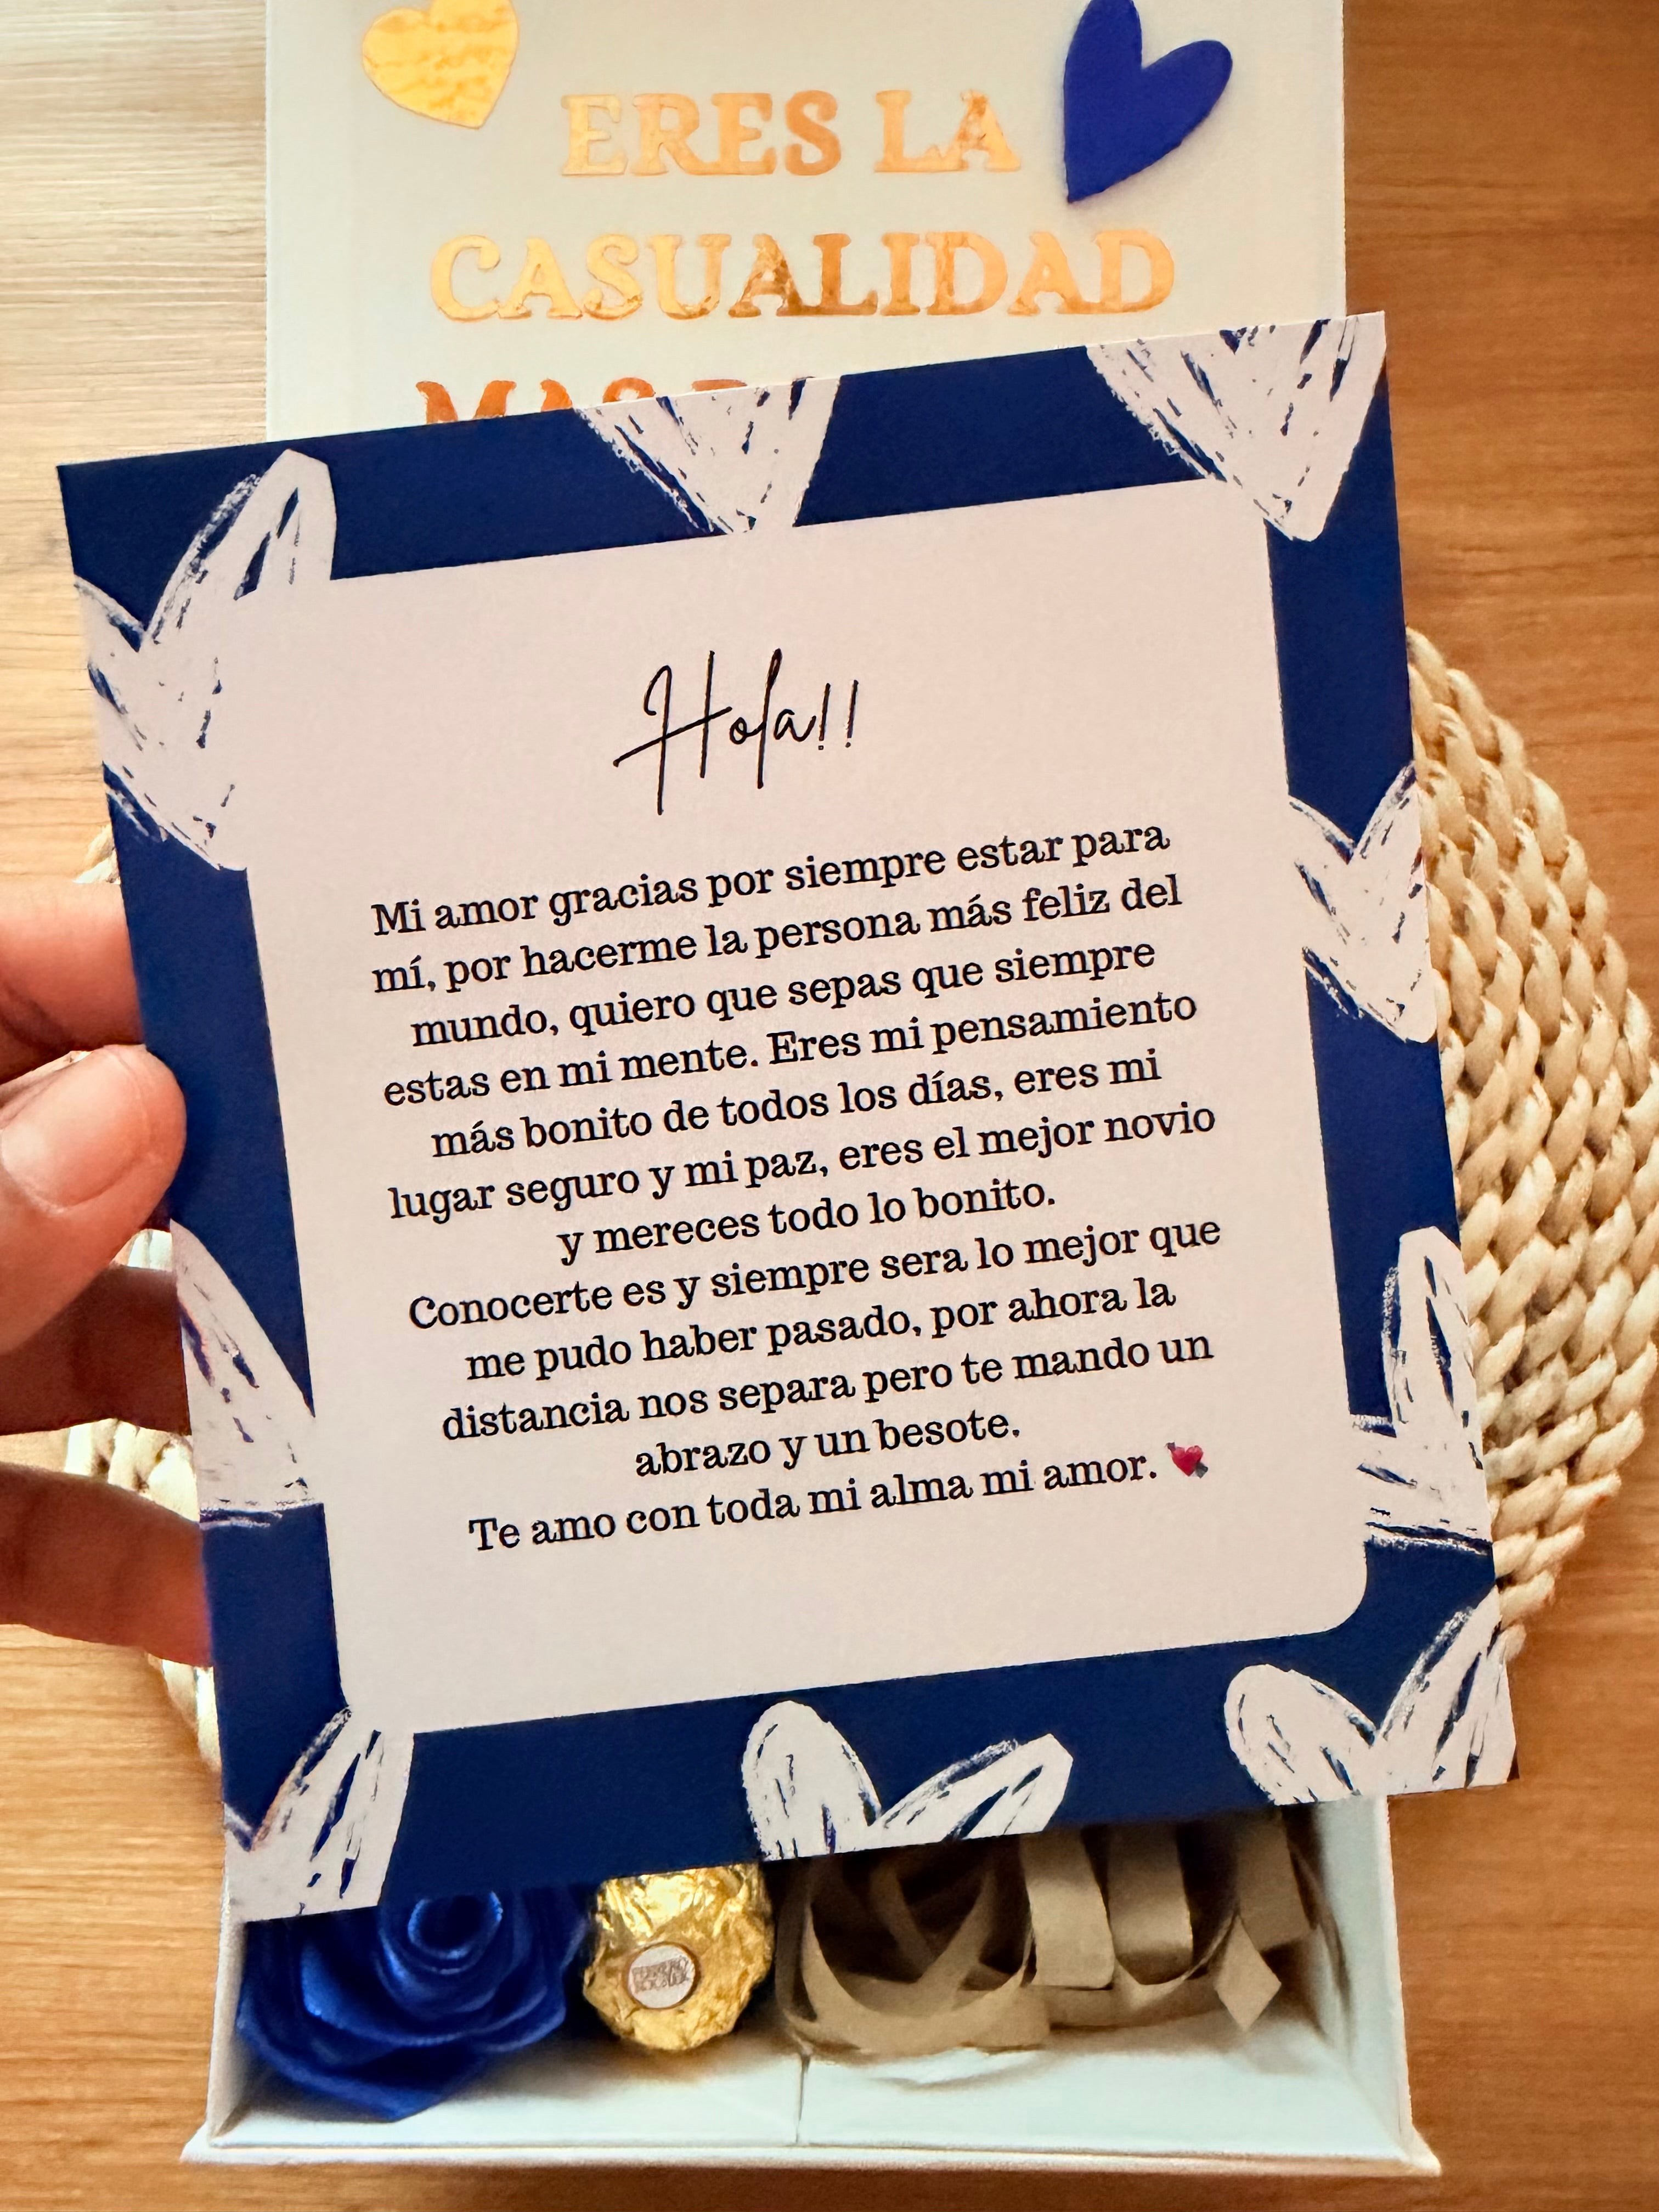 ERES LA
CASUALIDAD
MAS
Hola!!
Mi amor gracias por siempre estar para
mí, por hacerme la persona más feliz del
mundo, quiero que sepas que siempre
estas en mi mente. Eres mi pensamiento
más bonito de todos los días, eres mi
lugar seguro y mi paz, eres el mejor novio
y mereces todo lo bonito.
Conocerte es y siempre sera lo mejor que
me pudo haber pasado, por ahora la
distancia nos separa pero te mando un
abrazo y un besote.
Te amo con toda mi alma mi amor. 💘
FERRERO
ROCHER